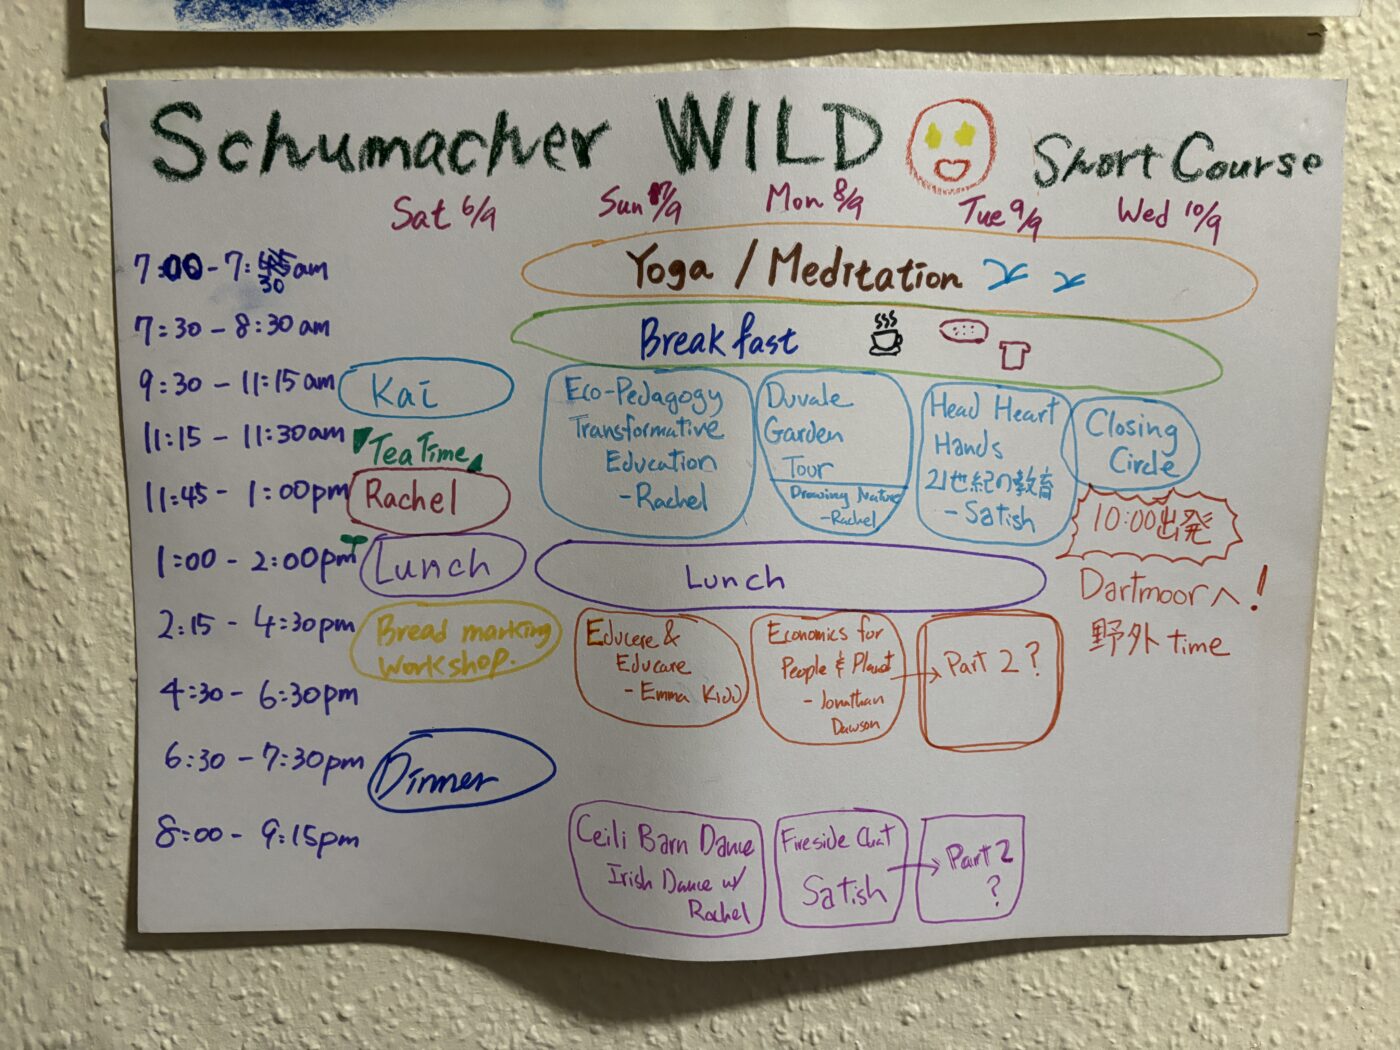 Schumacher WILD Short Course
Sat 6/9 Sun 7/9 Mon 8/9 Tue 9/9 Wed 10/9
7:00 - 7:30 am
Yoga / Meditation
7:30 - 8:30 am
Breakfast
9:30 - 11:15 am
Kai
11:15 - 11:30 am
Tea Time
11:45 - 1:00pm
Rachel
Eco-Pedagogy
Transformative
Education
- Rachel
Duvale
Garden
Tour
Drawing Nature
- Rachel
Head Heart
Hands
21世紀の教育
- Satish
Closing
Circle
10:00出発
Dartmoorへ!
野外 time
1:00 - 2:00pm
Lunch
Lunch
2:15 - 4:30pm
Bread marking
workshop.
Educere &
Educare
- Emma
Economics for
People & Planet
- Jonathan
Dawson
Part 2 ?
4:30 - 6:30pm
6:30 - 7:30pm
Dinner
8:00 - 9:15pm
Ceili Barn Dance
Irish Dance w/
Rachel
Fireside Chat
Satish
Part 2
?